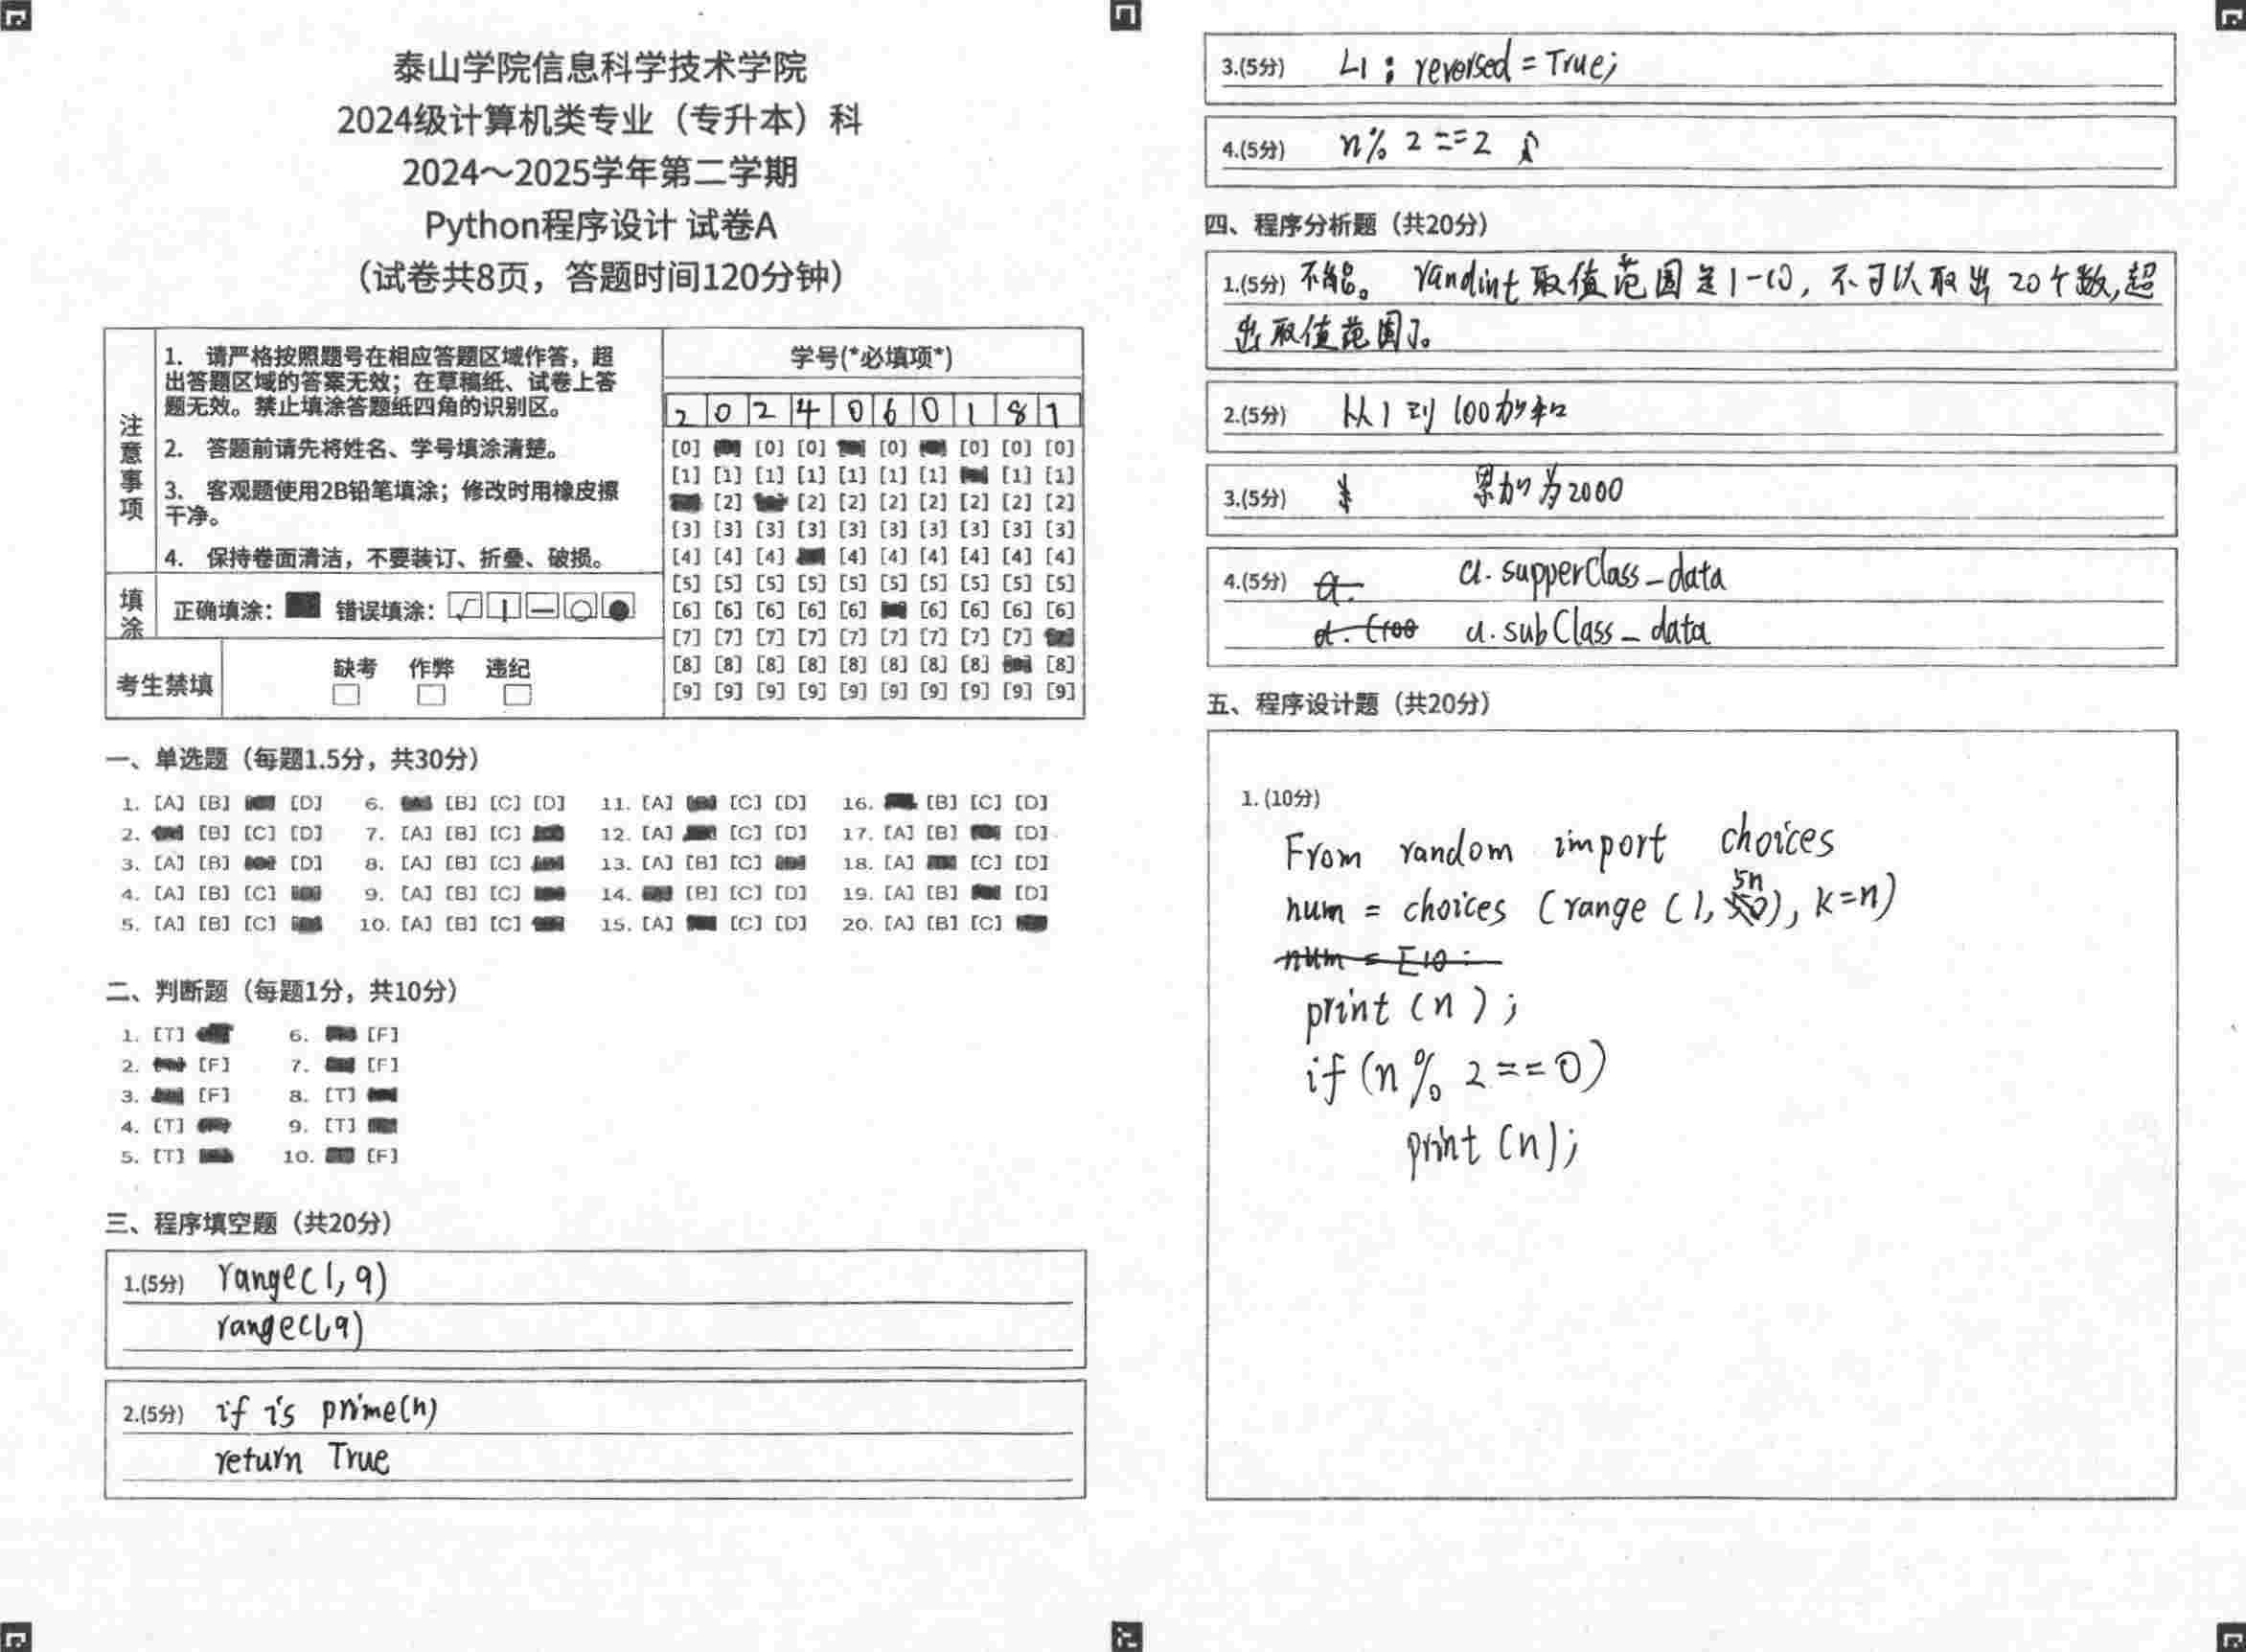 泰山学院信息科学技术学院
2024级计算机类专业（专升本）科
2024～2025学年第二学期
Python程序设计 试卷A
（试卷共8页，答题时间120分钟）
注意事项
1. 请严格按照题号在相应答题区域作答，超
出答题区域的答案无效；在草稿纸、试卷上答
题无效。禁止填涂答题纸四角的识别区。
2. 答题前请先将姓名、学号填涂清楚。
3. 客观题使用2B铅笔填涂；修改时用橡皮擦
干净。
4. 保持卷面清洁，不要装订、折叠、破损。
填涂 正确填涂： 错误填涂：
考生禁填 缺考 作弊 违纪
学号(*必填项*)
2 0 2 4 0 6 0 1 8 7
[0] [0] [0] [0] [0] [0] [0]
[1] [1] [1] [1] [1] [1] [1] [1] [1]
[2] [2] [2] [2] [2] [2] [2] [2]
[3] [3] [3] [3] [3] [3] [3] [3] [3] [3]
[4] [4] [4] [4] [4] [4] [4] [4] [4]
[5] [5] [5] [5] [5] [5] [5] [5] [5] [5]
[6] [6] [6] [6] [6] [6] [6] [6] [6]
[7] [7] [7] [7] [7] [7] [7] [7] [7]
[8] [8] [8] [8] [8] [8] [8] [8] [8]
[9] [9] [9] [9] [9] [9] [9] [9] [9] [9]
一、单选题（每题1.5分，共30分）
1. [A] [B] [D] 6. [B] [C] [D] 11. [A] [C] [D] 16. [B] [C] [D]
2. [B] [C] [D] 7. [A] [B] [C] 12. [A] [C] [D] 17. [A] [B] [D]
3. [A] [B] [D] 8. [A] [B] [C] 13. [A] [B] [C] 18. [A] [C] [D]
4. [A] [B] [C] 9. [A] [B] [C] 14. [B] [C] [D] 19. [A] [B] [D]
5. [A] [B] [C] 10. [A] [B] [C] 15. [A] [C] [D] 20. [A] [B] [C]
二、判断题（每题1分，共10分）
1. [T] 6. [F]
2. [F] 7. [F]
3. [F] 8. [T]
4. [T] 9. [T]
5. [T] 10. [F]
三、程序填空题（共20分）
1.(5分) range(1,9)
range(1,9)
2.(5分) if is prime(n)
return True
3.(5分) L1 ; reversed = True;
4.(5分) n% 2 == 2
四、程序分析题（共20分）
1.(5分) 不能。 randint取值范围是1-10，不可以取出20个数，超
出取值范围了。
2.(5分) 从1到100加和
3.(5分) 累加为2000
4.(5分) a. supperClass_data
a. subClass_data
五、程序设计题（共20分）
1. (10分)
From random import choices
num = choices (range (1, 5n), k=n)
num = [10 :
print (n) ;
if (n % 2 == 0)
print (n);